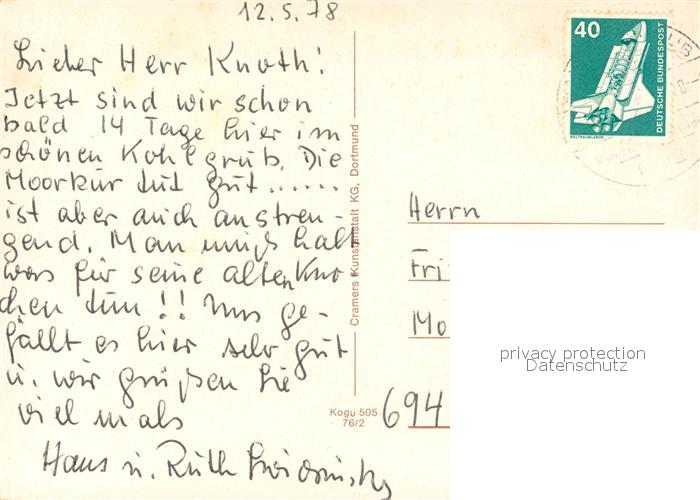 12.5.78
Lieber Herr Knoth!
Jetzt sind wir schon
bald 14 Tage hier im
schönen Kohlgrub. Die
Moorkur tut gut......
ist aber auch anstren-
gend. Man muß halt
was für seine alten Kno-
chen tun!! Uns ge-
fällt es hier sehr gut
u. wir grüßen Sie
vielmals
Hans u. Ruth
Cramers Kunstanstalt KG, Dortmund
Kogu 505
76/2
40
DEUTSCHE BUNDESPOST
WELTRAUMLABOR
Herrn
Fri
Mo
694
privacy protection
Datenschutz